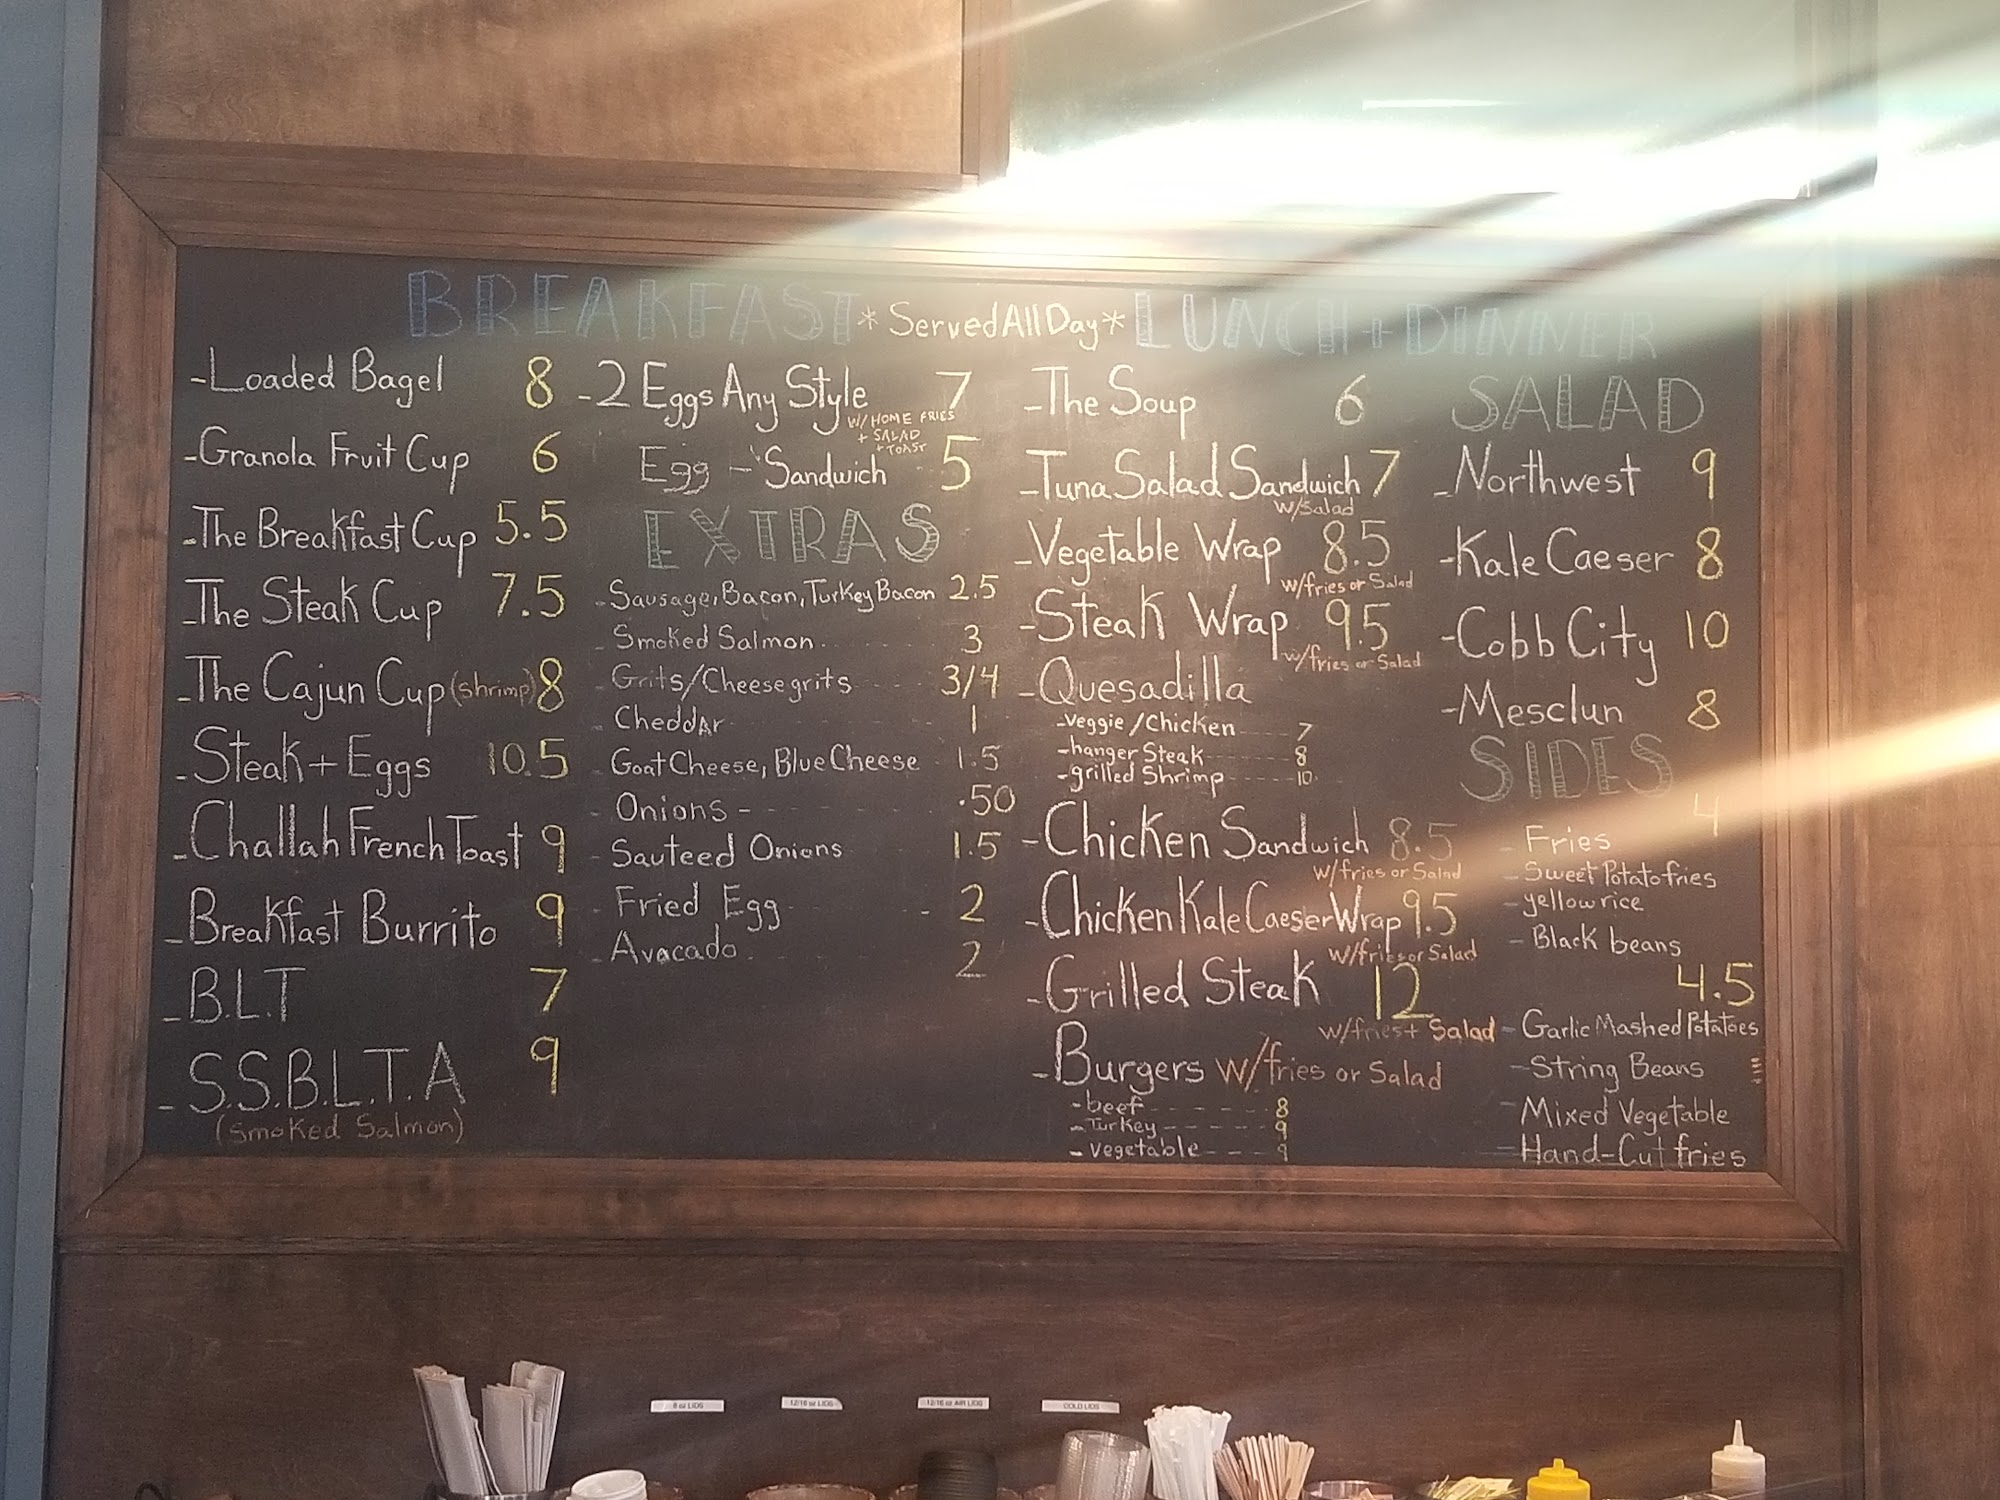 BREAKFAST *Served All Day* LUNCH + DINNER
-Loaded Bagel 8
-Granola Fruit Cup 6
-The Breakfast Cup 5.5
-The Steak Cup 7.5
-The Cajun Cup (shrimp) 8
-Steak + Eggs 10.5
-Challah French Toast 9
-Breakfast Burrito 9
-B.L.T 7
-S.S.B.L.T.A 9
(smoked Salmon)
-2 Eggs Any Style 7
W/ HOME FRIES
+ SALAD
+ TOAST
Egg - Sandwich 5
EXTRAS
-Sausage, Bacon, Turkey Bacon 2.5
-Smoked Salmon 3
-Grits/Cheesegrits 3/4
-Cheddar 1
-Goat Cheese, Blue Cheese 1.5
-Onions .50
-Sauteed Onions 1.5
-Fried Egg 2
-Avacado 2
-The Soup 6
-Tuna Salad Sandwich 7
w/Salad
-Vegetable Wrap 8.5
w/fries or Salad
-Steak Wrap 9.5
w/fries or Salad
-Quesadilla
-veggie/Chicken 7
-hanger Steak 8
-grilled Shrimp 10
-Chicken Sandwich 8.5
w/fries or Salad
-Chicken Kale Caeser Wrap 9.5
w/fries or Salad
-Grilled Steak 12
w/fries + Salad
-Burgers w/fries or Salad
-beef 8
-Turkey 9
-vegetable 9
SALAD
-Northwest 9
-Kale Caeser 8
-Cobb City 10
-Mesclun 8
SIDES
4
-Fries
-Sweet Potato fries
-yellow rice
-Black beans
4.5
-Garlic Mashed Potatoes
-String Beans
-Mixed Vegetable
-Hand-Cut fries
8 oz LIDS
12/16 oz LIDS
12/16 oz AIR LIDS
COLD LIDS